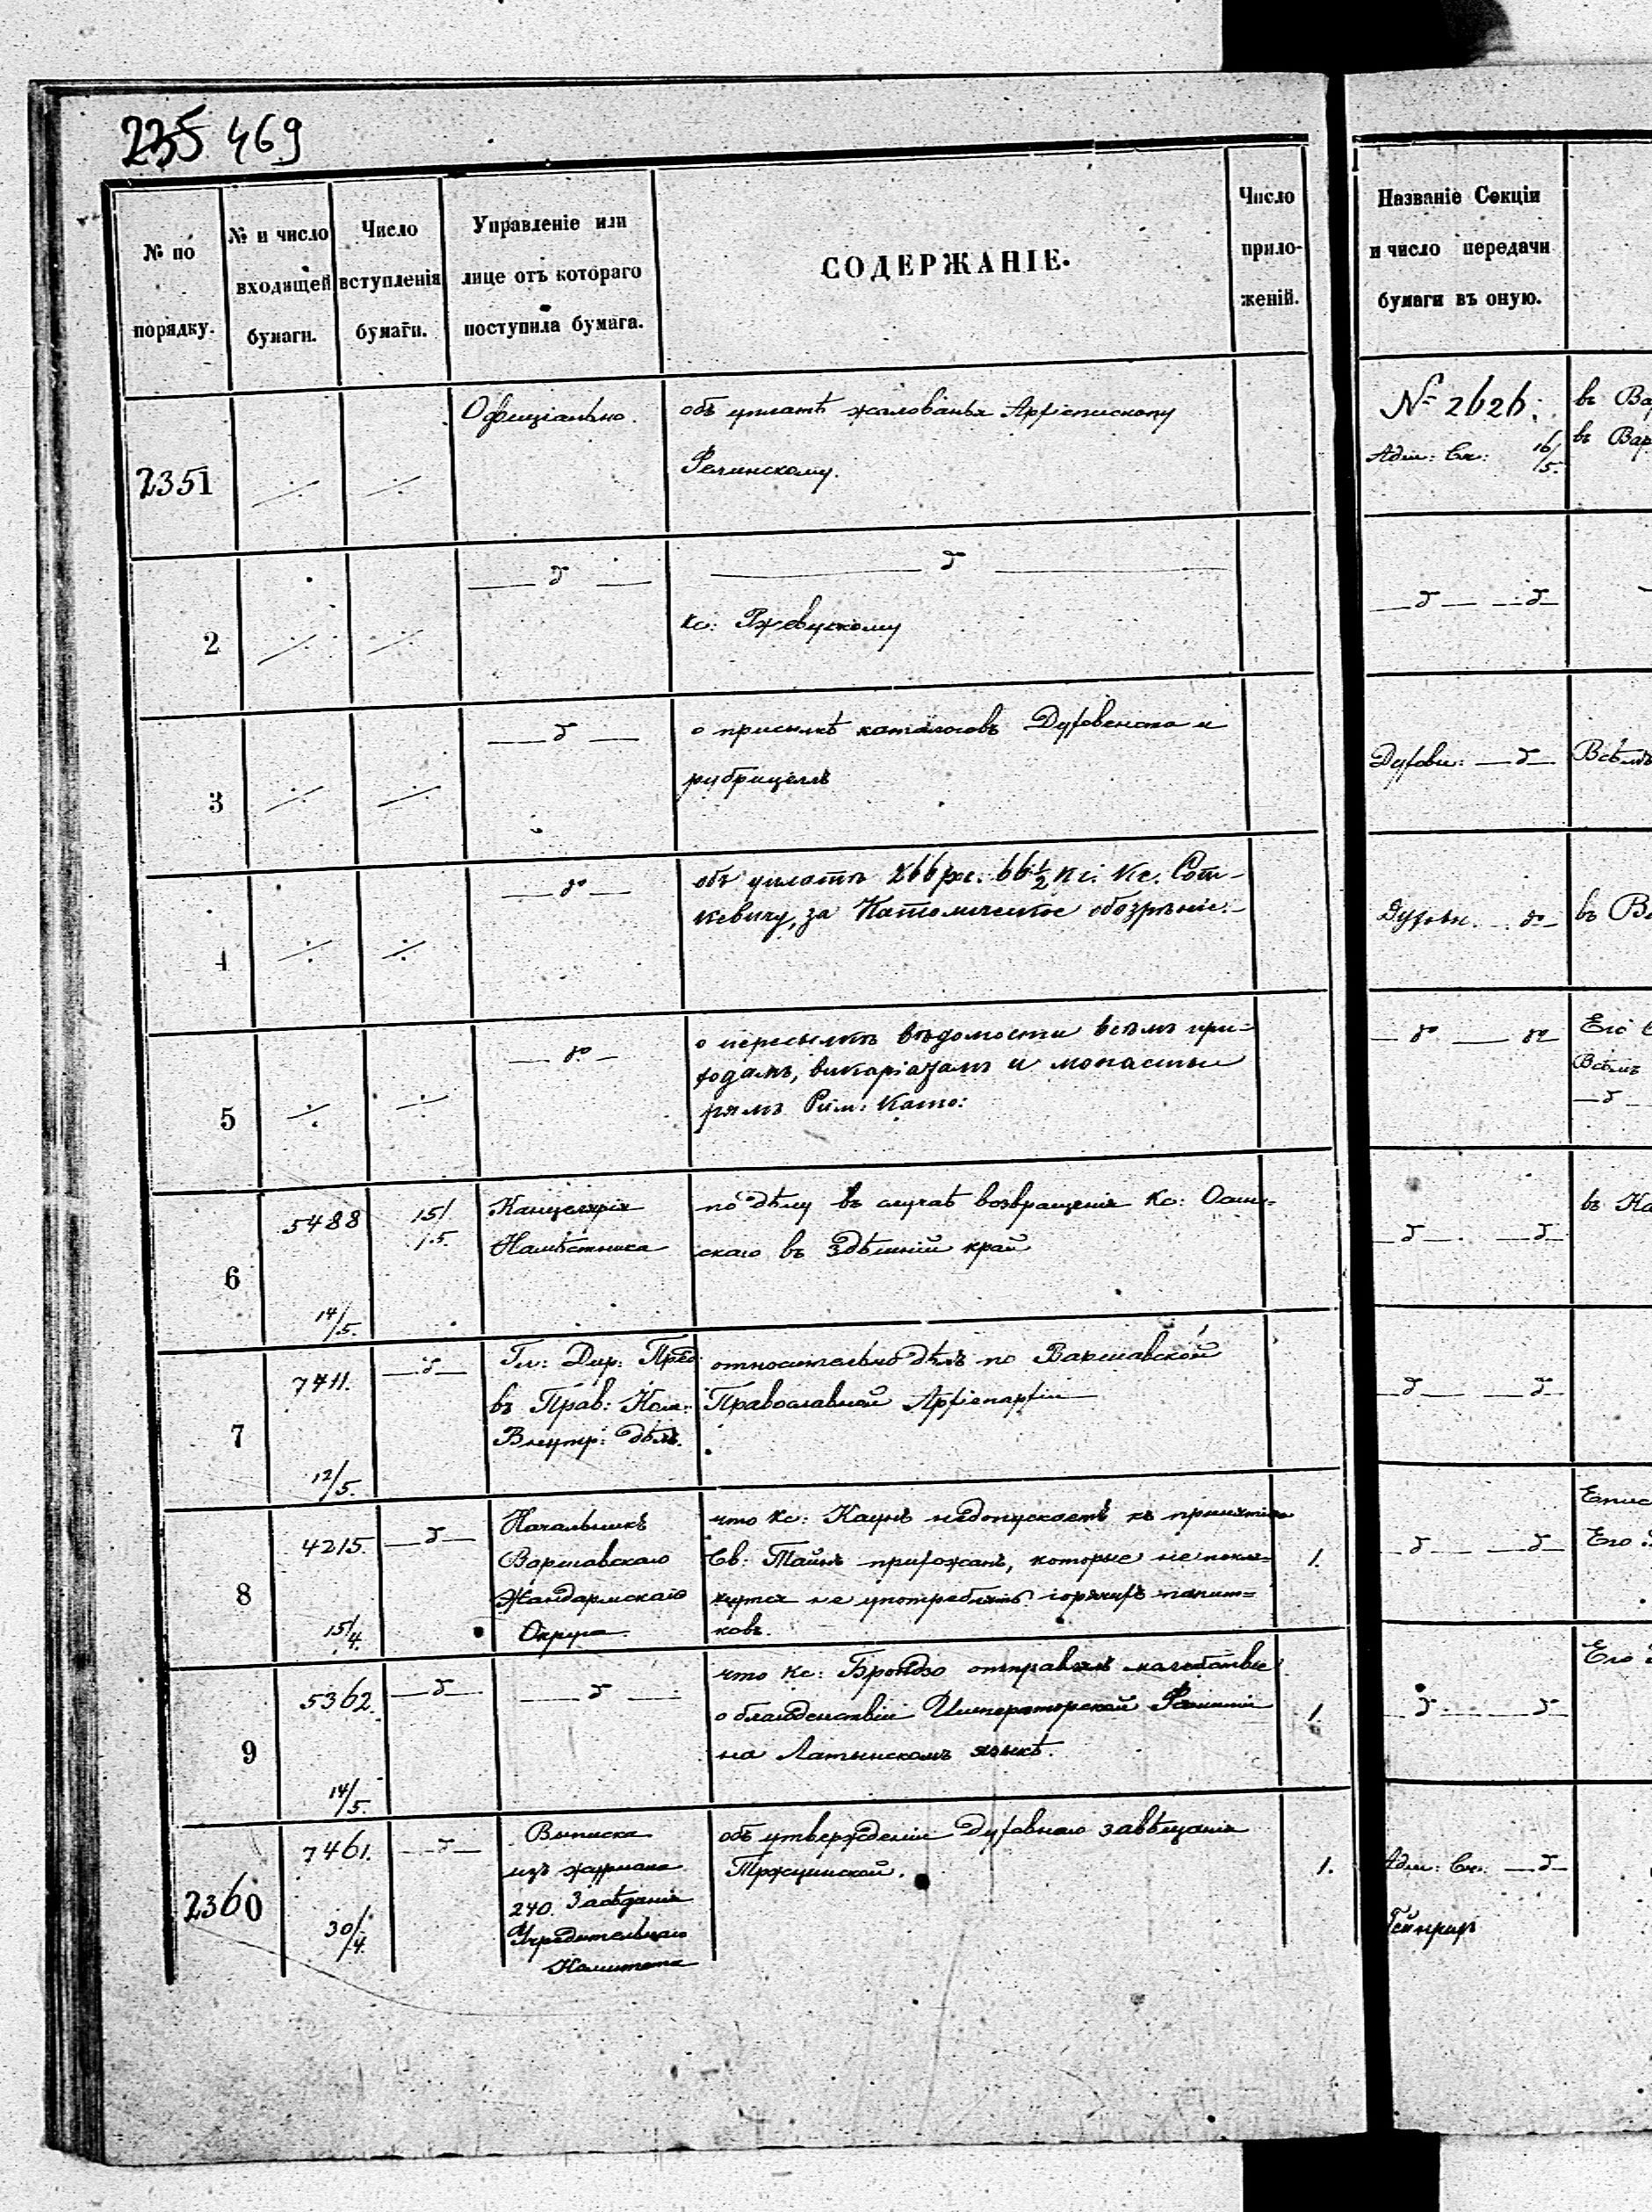 235 469
№ по порядку.
№ и число входящей бумаги.
Число вступленія бумаги.
Управленіе или лице отъ котораго поступила бумага.
СОДЕРЖАНІЕ.
Число приложеній.
Названіе Секціи и число передачи бумаги въ оную.
2351
Офиціально.
объ уплатѣ жалованья Архіепископу
Фелинскому.
№ 2626.
Адм: Ск: 16/5.
въ Ва
въ Вар
2
— д — — д —
Кс: Ржевускому
— д — — д —
3
— д —
о присылкѣ каталоговъ Духовенства и
рубрицеллъ
Духовн: — д —
Всѣмъ
4
— до —
объ уплатѣ 266 рс. 66½ Кі. Кс. Сот-
кевичу, за Католическое обозрѣніе.-
Духовн. до —
въ Ва
5
— до —
о пересылкѣ вѣдомости всѣмъ при-
ходамъ, викаріатамъ и монасты
рямъ Рим: Като:
— до — до
Его
Всѣмъ
— д —
6
5488
14/5.
15/5.
Канцелярія
Намѣстника
по дѣлу въ случаѣ возвращенія Кс:
скаго въ здѣшній край
— д — — д —
въ Ка
7
7411.
12/5.
— д —
Гл: Дир: Пред
въ Прав: Ком:
Внутр: дѣлъ.
относительно дѣлъ по Варшавской
Православной Архіепархіи
— д — — д —
8
4215.
15/4.
— д —
Начальникъ
Варшавскаго
Жандармскаго
Округа.
что Кс: Каунъ недопускаетъ къ принятію
Св: Тайнъ прихожанъ, которые не покля-
нутся не употреблять горячихъ напит-
ковъ.
1.
— д — — д —
Епис
Его
9
5362.
14/5.
— д —
— д —
что Кс: Брондзо отправлялъ малебствіе
о благоденствіи Императорской Фамиліи
на Латынскомъ языкѣ.
1.
— д — — д —
Его
2360
7461.
30/4.
— д —
Выписка
изъ журнала
240. Засѣданія
Учредительнаго
Комитета
объ утвержденіи Духовнаго завѣщанія
Тржцинской.
1.
Адм: Ск: — д —
Гейнрихъ